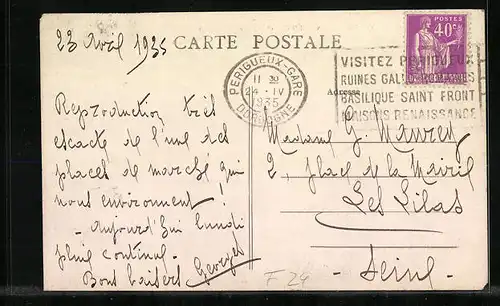 23 Avril 1935
CARTE POSTALE
POSTES
40c
PERIGUEUX-GARE
11 30
24 - IV
1935
DORDOGNE
VISITEZ PERIGUEUX
RUINES GALLO-ROMAINES
BASILIQUE SAINT FRONT
MAISONS RENAISSANCE
Adresse
Reproduction très
exacte de l'une des
places de marché qui
nous environnent !
- Aujourd'hui lundi
pluie continue -
Bons baisers
Georges
Madame G
2, place de la Mairie
Les Lilas
- Seine -
F 24